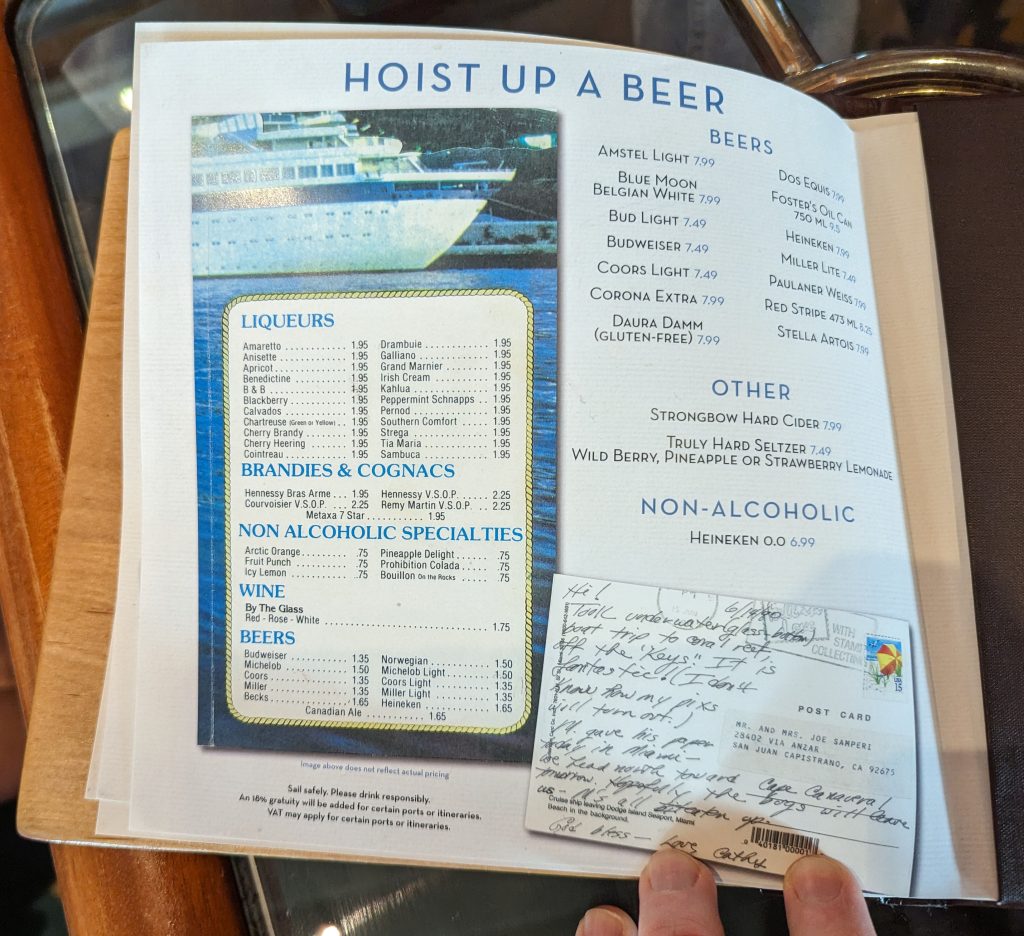 HOIST UP A BEER
LIQUEURS
Amaretto 1.95
Anisette 1.95
Apricot 1.95
Benedictine 1.95
B & B 1.95
Blackberry 1.95
Calvados 1.95
Chartreuse (Green or Yellow) 1.95
Cherry Brandy 1.95
Cherry Heering 1.95
Cointreau 1.95
Drambuie 1.95
Galliano 1.95
Grand Marnier 1.95
Irish Cream 1.95
Kahlua 1.95
Peppermint Schnapps 1.95
Pernod 1.95
Southern Comfort 1.95
Strega 1.95
Tia Maria 1.95
Sambuca 1.95
BRANDIES & COGNACS
Hennessy Bras Arme 1.95
Courvoisier V.S.O.P. 2.25
Hennessy V.S.O.P. 2.25
Remy Martin V.S.O.P. 2.25
Metaxa 7 Star 1.95
NON ALCOHOLIC SPECIALTIES
Arctic Orange .75
Fruit Punch .75
Icy Lemon .75
Pineapple Delight .75
Prohibition Colada .75
Bouillon On the Rocks .75
WINE
By The Glass
Red - Rose - White 1.75
BEERS
Budweiser 1.35
Michelob 1.50
Coors 1.35
Miller 1.35
Becks 1.65
Norwegian 1.50
Michelob Light 1.50
Coors Light 1.35
Miller Light 1.35
Heineken 1.65
Canadian Ale 1.65
Image above does not reflect actual pricing
Sail safely. Please drink responsibly.
An 18% gratuity will be added for certain ports or itineraries.
VAT may apply for certain ports or itineraries.
BEERS
AMSTEL LIGHT 7.99
BLUE MOON
BELGIAN WHITE 7.99
BUD LIGHT 7.49
BUDWEISER 7.49
COORS LIGHT 7.49
CORONA EXTRA 7.99
DAURA DAMM
(GLUTEN-FREE) 7.99
DOS EQUIS 7.99
FOSTER'S OIL CAN
750 ML 9.5
HEINEKEN 7.99
MILLER LITE 7.49
PAULANER WEISS 7.99
RED STRIPE 473 ML 8.25
STELLA ARTOIS 7.99
OTHER
STRONGBOW HARD CIDER 7.99
TRULY HARD SELTZER 7.49
WILD BERRY, PINEAPPLE OR STRAWBERRY LEMONADE
NON-ALCOHOLIC
HEINEKEN 0.0 6.99
Hi!
Took underwater glass bottom
boat trip to coral reef,
off the "Keys". It is
fantastic! (I don't
know how my pixs
will turn out.)
gave his paper
today in Miami -
we head north toward Cape Canaveral
tomorrow. Hopefully the boys will leave
us -
God bless - Love Cathy
WITH
STAMP
COLLECTING
USA
15
POST CARD
MR. AND MRS. JOE SAMPERI
28402 VIA ANZAR
SAN JUAN CAPISTRANO, CA 92675
Cruise ship leaving Dodge Island Seaport, Miami
Beach in the background.